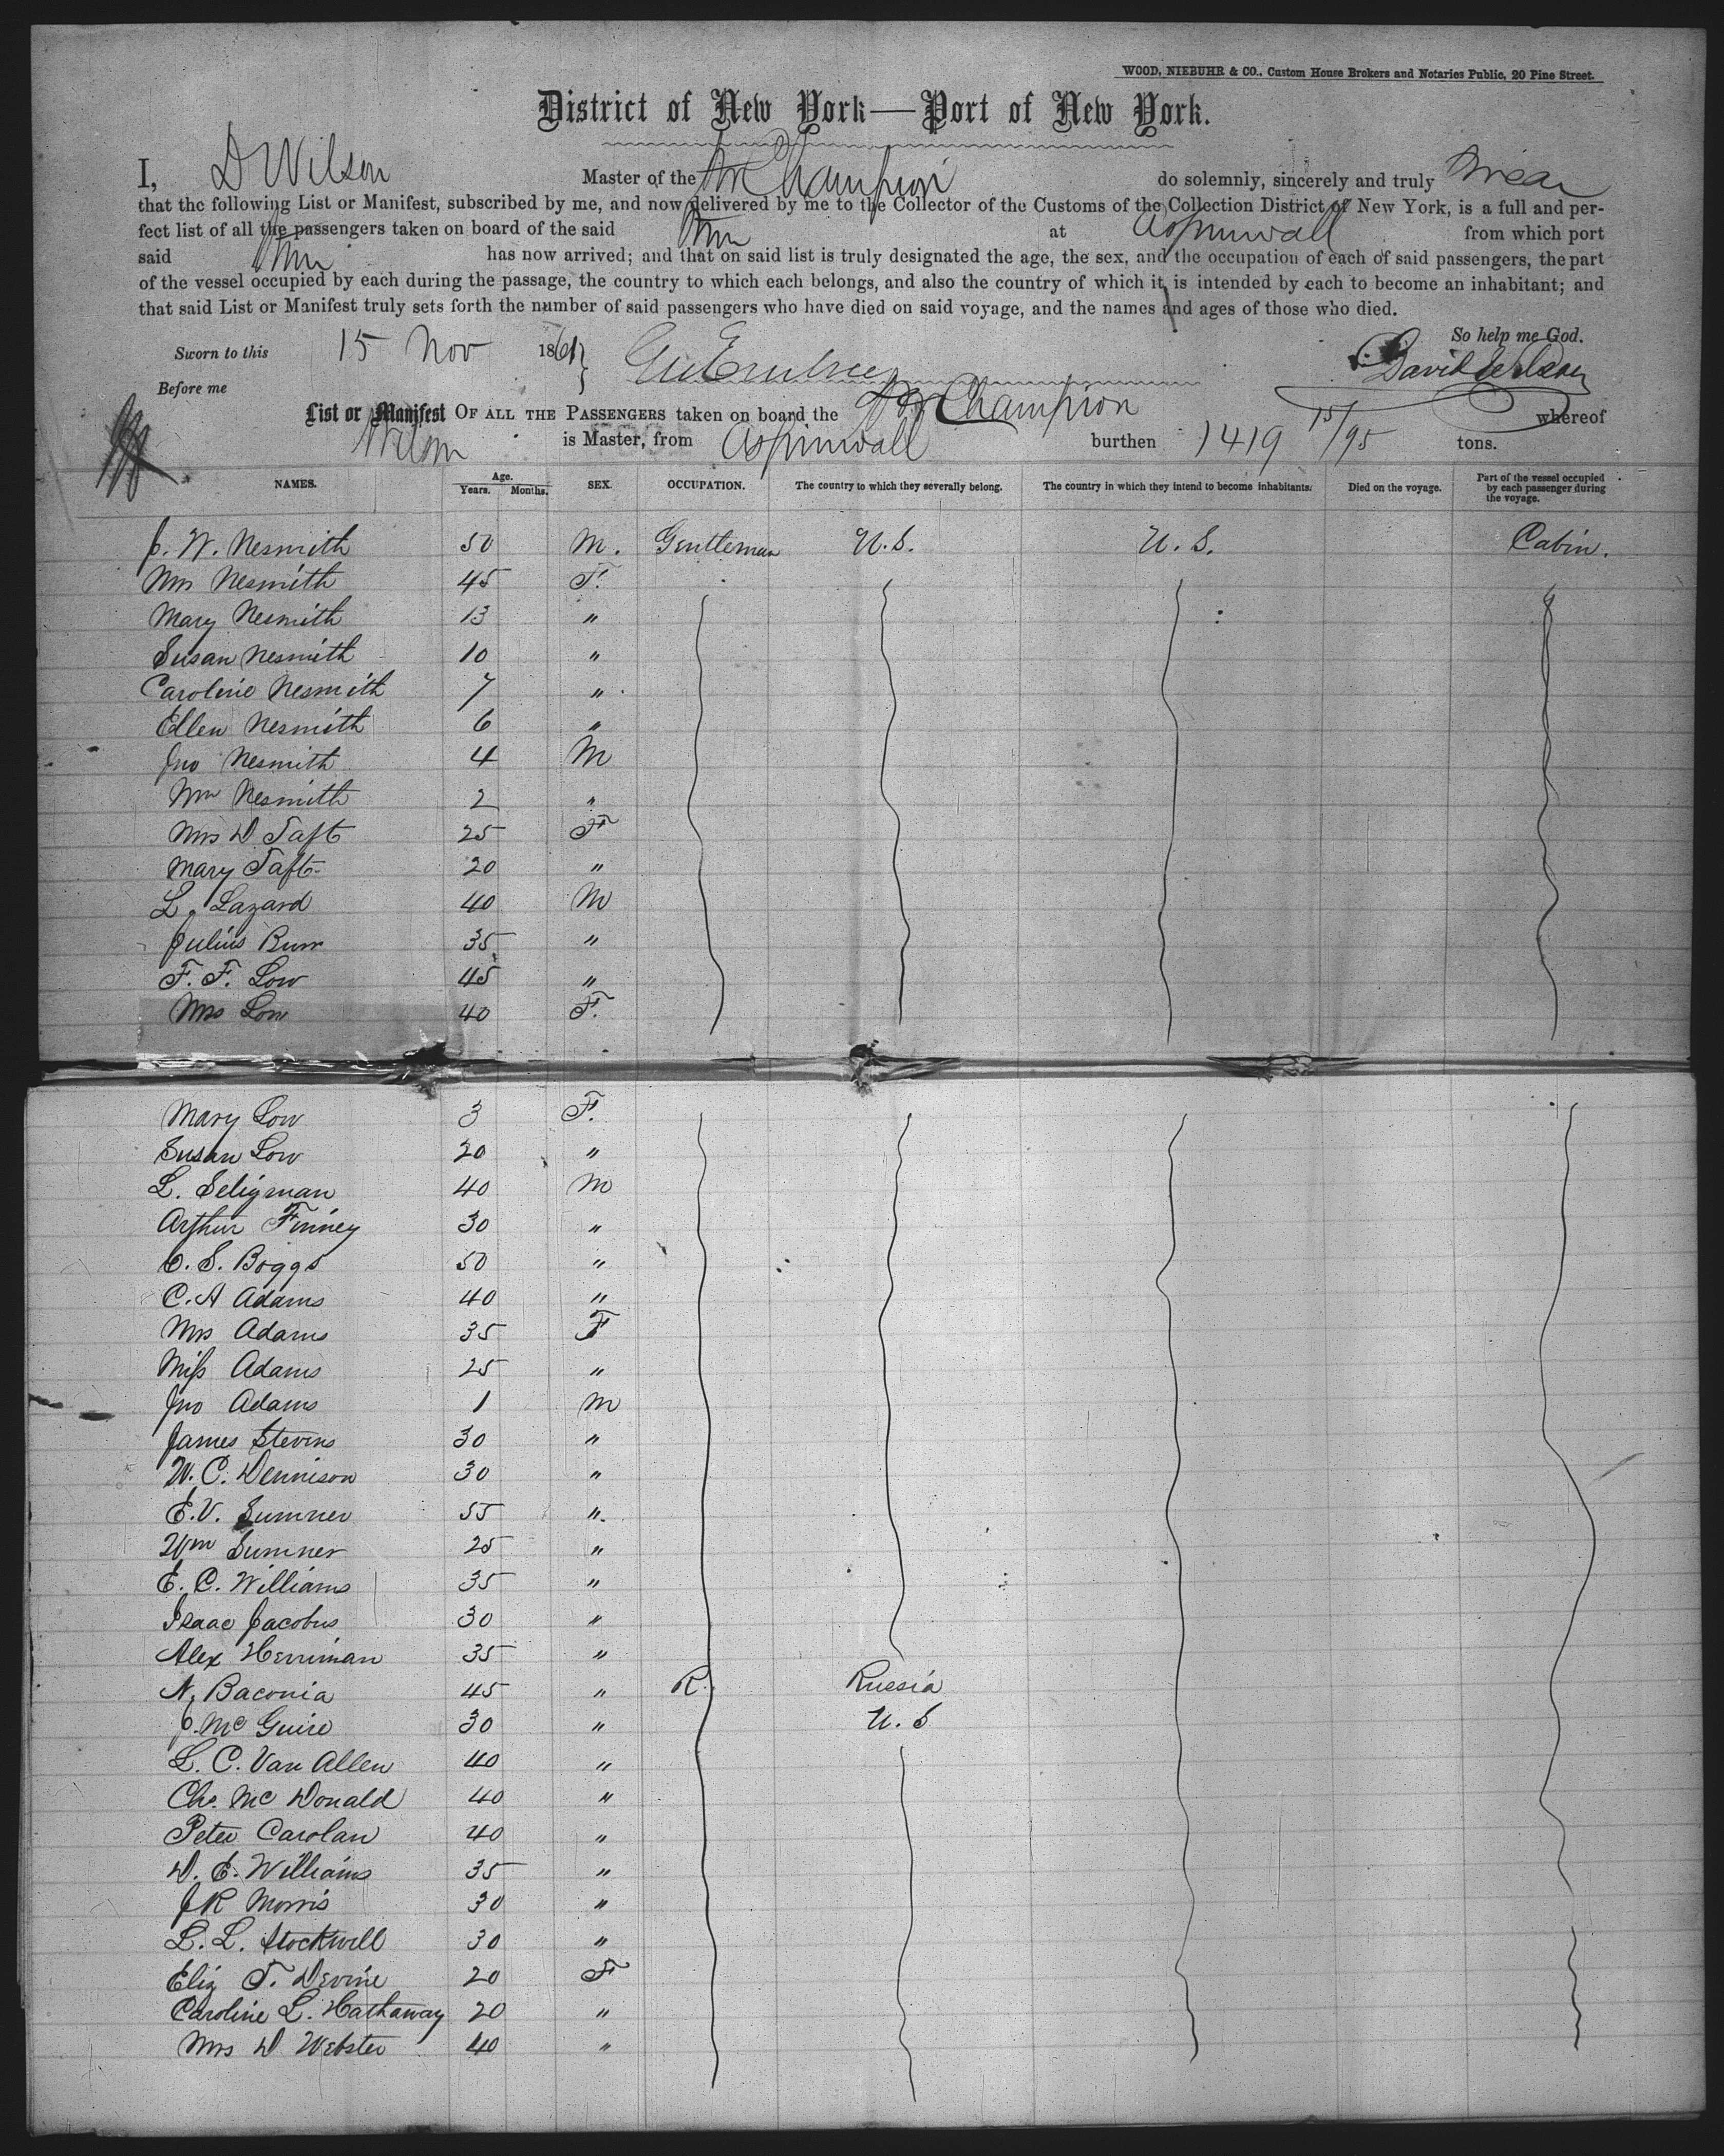 WOOD, NIEBUHR & CO., Custom House Brokers and Notaries Public, 20 Pine Street.
District of New York—Port of New York.
I, D Wilson Master of the Str Champion do solemnly, sincerely and truly swear
that the following List or Manifest, subscribed by me, and now delivered by me to the Collector of the Customs of the Collection District of New York, is a full and per-
fect list of all the passengers taken on board of the said Str at Aspinwall from which port
said Str has now arrived; and that on said list is truly designated the age, the sex, and the occupation of each of said passengers, the part
of the vessel occupied by each during the passage, the country to which each belongs, and also the country of which it is intended by each to become an inhabitant; and
that said List or Manifest truly sets forth the number of said passengers who have died on said voyage, and the names and ages of those who died.
So help me God.
Sworn to this 15 Nov 1861 David Wilson
Before me
List or Manifest OF ALL THE PASSENGERS taken on board the Str Champion whereof
Wilson is Master, from Aspinwall burthen 1419 15/95 tons.
NAMES. Age. Years. Months. SEX. OCCUPATION. The country to which they severally belong. The country in which they intend to become inhabitants. Died on the voyage. Part of the vessel occupied by each passenger during the voyage.
J. W. Nesmith 50 M. Gentleman U.S. U.S. Cabin.
Mrs Nesmith 45 F.
Mary Nesmith 13 "
Susan Nesmith 10 "
Caroline Nesmith 7 "
Ellen Nesmith 6 "
Jno Nesmith 4 M
Wm Nesmith 2 "
Mrs D Taft 25 F
Mary Taft 20 "
L. Lazard 40 M
Julius Burr 35 "
F. F. Low 45 "
Mrs Low 40 F.
Mary Low 3 F.
Susan Low 20 "
L. Seligman 40 M
Arthur Finney 30 "
C. S. Boggs 50 "
C. A Adams 40 "
Mrs Adams 35 F
Miss Adams 25 "
Jno Adams 1 M
James Stevens 30 "
W. C. Dennison 30 "
E. V. Sumner 55 "
Wm Sumner 25 "
E. C. Williams 35 "
Isaac Jacobus 30 "
Alex Herriman 35 "
N. Baconia 45 " R. Russia
J. McGuire 30 " U. S
L. C. Van Allen 40 "
Chs. McDonald 40 "
Peter Carolan 40 "
D. E. Williams 35 "
J R Morris 30 "
L. L. Stockwell 30 "
Eliz T. Devine 20 F
Caroline L. Hathaway 20 "
Mrs D Webster 40 "